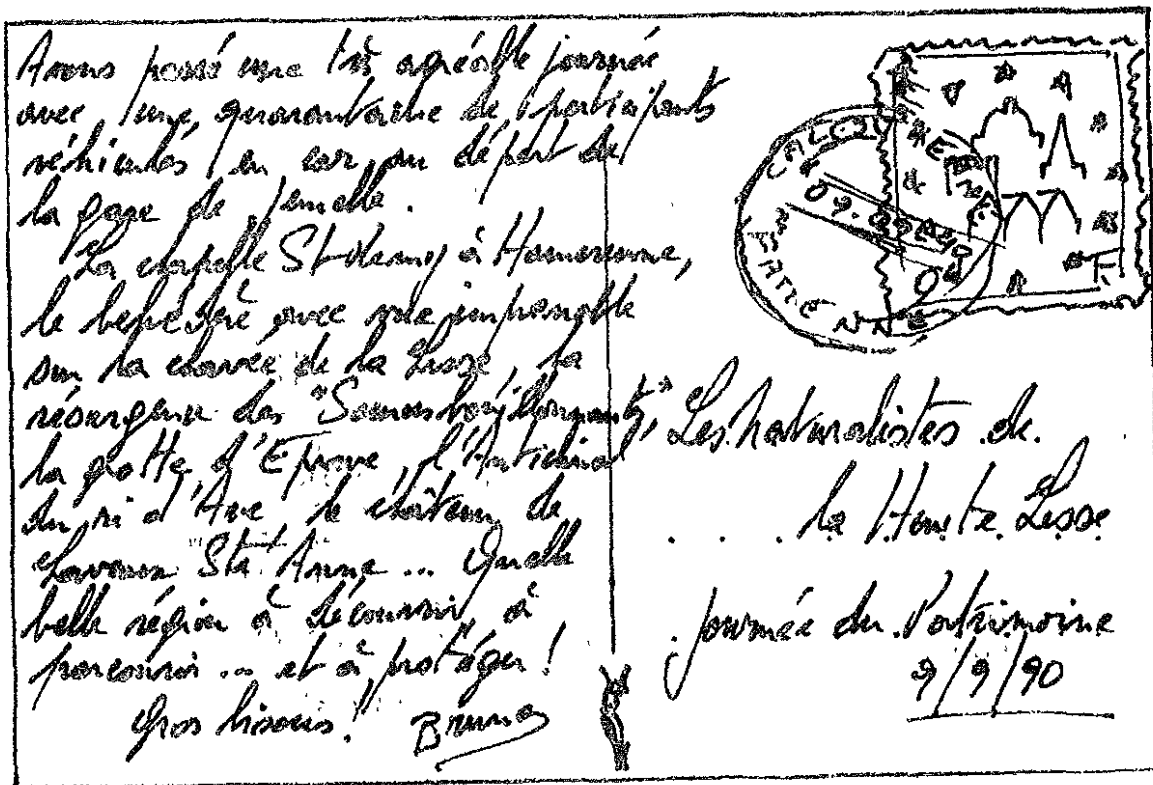 Avons passé une très agréable journée
avec une quarantaine de participants
véhiculés en car au départ de
la gare de Jemelle.
La chapelle St Remy à Hamerenne,
le belvédère avec vue imprenable
sur la chavée de la Lesse, la
résurgence des "Sources bouillonnantes",
la grotte d'Eprave, l'Anticlinal
du ri d'Ave, le château de
Lavaux Ste Anne... Quelle
belle région à découvrir, à
parcourir... et à protéger!
Gros bisous! Bruno
CALCU
09.09.
Les Naturalistes de
la Haute Lesse
journée du Patrimoine
9/9/90